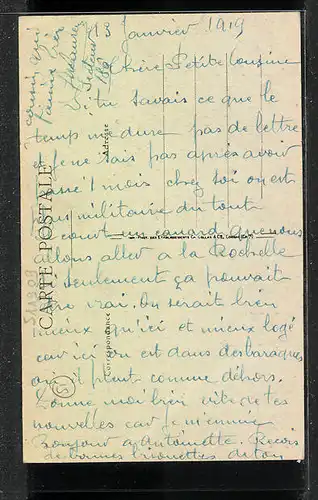 13 Janvier 1919
Chère Petite Cousine
si tu savais ce que le
temps me dure pas de lettre
et je ne sais pas après avoir
passé 1 mois chez soi on est
plus militaire du tout
court un canard que nous
allons aller a la Rochelle
si seulement ça pouvait
être vrai. On serait bien
mieux qu'ici et mieux logé
car ici on est dans des baraques
où il pleut comme dehors.
Donne moi bien vite de tes
nouvelles car je m'ennuie
Bonjour a Antoinette. Reçois
de bonnes brionettes de ton
cousin qui
t'aime bien
Secteur
CARTE POSTALE
Correspondance
Adresse